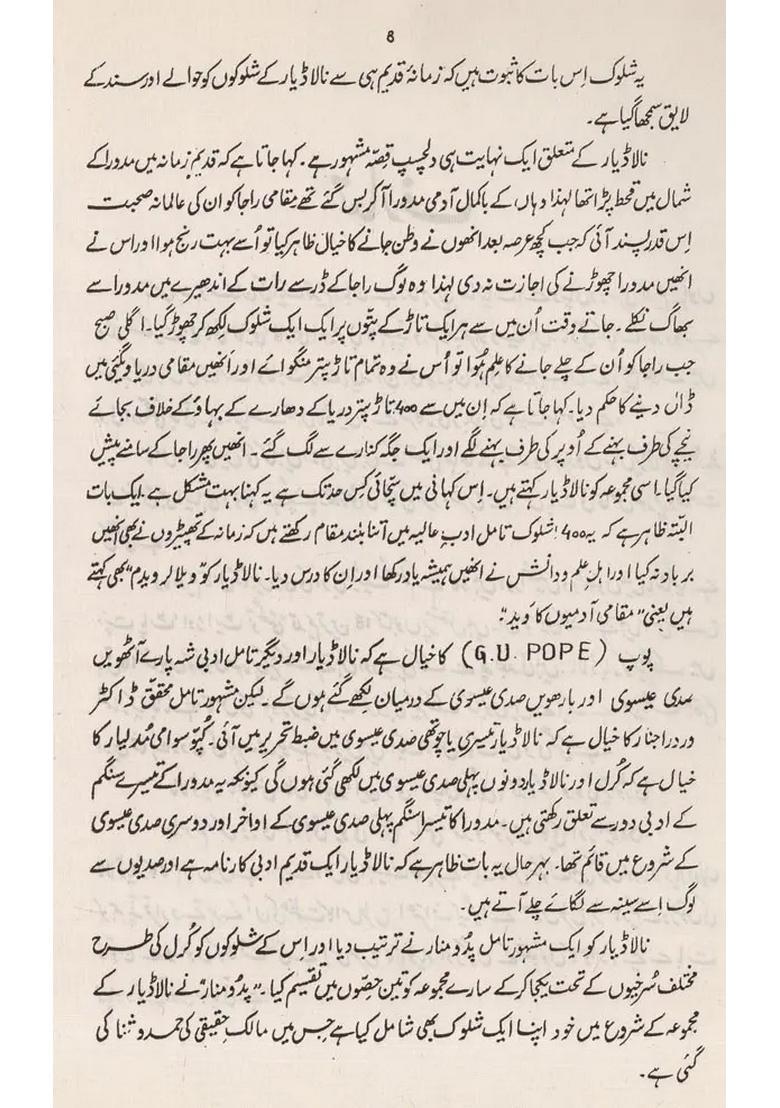 8
یہ شلوک اِس بات کا ثبوت ہیں کہ زمانۂ قدیم ہی سے نالاڈیار کے شلوکوں کو حوالے اور سند کے
لایق سمجھا گیا ہے۔
نالاڈیار کے متعلق ایک نہایت ہی دلچسپ قصّہ مشہور ہے۔ کہا جاتا ہے کہ قدیم زمانہ میں مدورا کے
شمال میں قحط پڑا تھا لہٰذا وہاں کے باکمال آدمی مدورا آ کر بس گئے تھے مقامی راجا کو ان کی عالمانہ صحبت
اِس قدر پسند آئی کہ جب کچھ عرصہ بعد انھوں نے وطن جانے کا خیال ظاہر کیا تو اُسے بہت رنج ہوا اور اس نے
انھیں مدورا چھوڑنے کی اجازت نہ دی لہٰذا وہ لوگ راجا کے ڈر سے رات کے اندھیرے میں مدورا سے
بھاگ نکلے۔ جاتے وقت اُن میں سے ہر ایک تاڑ کے پتّوں پر ایک ایک شلوک لکھ کر چھوڑ گیا۔ اگلی صبح
جب راجا کو اُن کے چلے جانے کا علم ہُوا تو اُس نے وہ تمام تاڑ پتر منگوائے اور اُنھیں مقامی دریا ویگیٔی میں
ڈال دینے کا حکم دیا۔ کہا جاتا ہے کہ اِن میں سے ۴۰۰ تاڑ پتر دریا کے دھارے کے بہاؤ کے خلاف بجائے
نیچے کی طرف بہنے کے اُوپر کی طرف بہنے لگے اور ایک جگہ کنارے سے لگ گئے۔ انھیں پھر راجا کے سامنے پیش
کیا گیا۔ اسی مجموعہ کو نالاڈیار کہتے ہیں۔ اِس کہانی میں سچّائی کس حد تک ہے یہ کہنا بہت مشکل ہے۔ ایک بات
البتّہ ظاہر ہے کہ یہ ۴۰۰ شلوک تامل ادبِ عالیہ میں اتنا بلند مقام رکھتے ہیں کہ زمانہ کے تھپیڑوں نے بھی انھیں
برباد نہ کیا اور اہلِ علم و دانش نے انھیں ہمیشہ یاد رکھا اور اِن کا درس دیا۔ نالاڈیار کو "ویلالر ویدم" بھی کہتے
ہیں یعنی "مقامی آدمیوں کا وَید"۔
پوپ (G.U. POPE) کا خیال ہے کہ نالاڈیار اور دیگر تامل ادبی شہ پارے آٹھویں
صدی عیسوی اور بارھویں صدی عیسوی کے درمیان لکھے گئے ہوں گے۔ لیکن مشہور تامل محقّق ڈاکٹر
وردراجنار کا خیال ہے کہ نالاڈیار تیسری یا چوتھی صدی عیسوی میں ضبطِ تحریر میں آئی۔ کُپّوسوامی مُدلیار کا
خیال ہے کہ کُرل اور نالاڈیار دونوں پہلی صدی عیسوی میں لکھی گئی ہوں گی کیونکہ یہ مدورا کے تیسرے سنگم
کے ادبی دور سے تعلق رکھتی ہیں۔ مدورا کا تیسرا سنگم پہلی صدی عیسوی کے اواخر اور دوسری صدی عیسوی
کے شروع میں قائم تھا۔ بہرحال یہ بات ظاہر ہے کہ نالاڈیار ایک قدیم ادبی کارنامہ ہے اور صدیوں سے
لوگ اِسے سینہ سے لگائے چلے آتے ہیں۔
نالاڈیار کو ایک مشہور تامل پدُومنار نے ترتیب دیا اور اِس کے شلوکوں کو کُرل کی طرح
مختلف سُرخیوں کے تحت یکجا کر کے سارے مجموعہ کو تین حصّوں میں تقسیم کیا۔ "پدُومنار" نے نالاڈیار کے
مجموعہ کے شروع میں خود اپنا ایک شلوک بھی شامل کیا ہے جس میں مالکِ حقیقی کی حمد و ثنا کی
گئی ہے۔